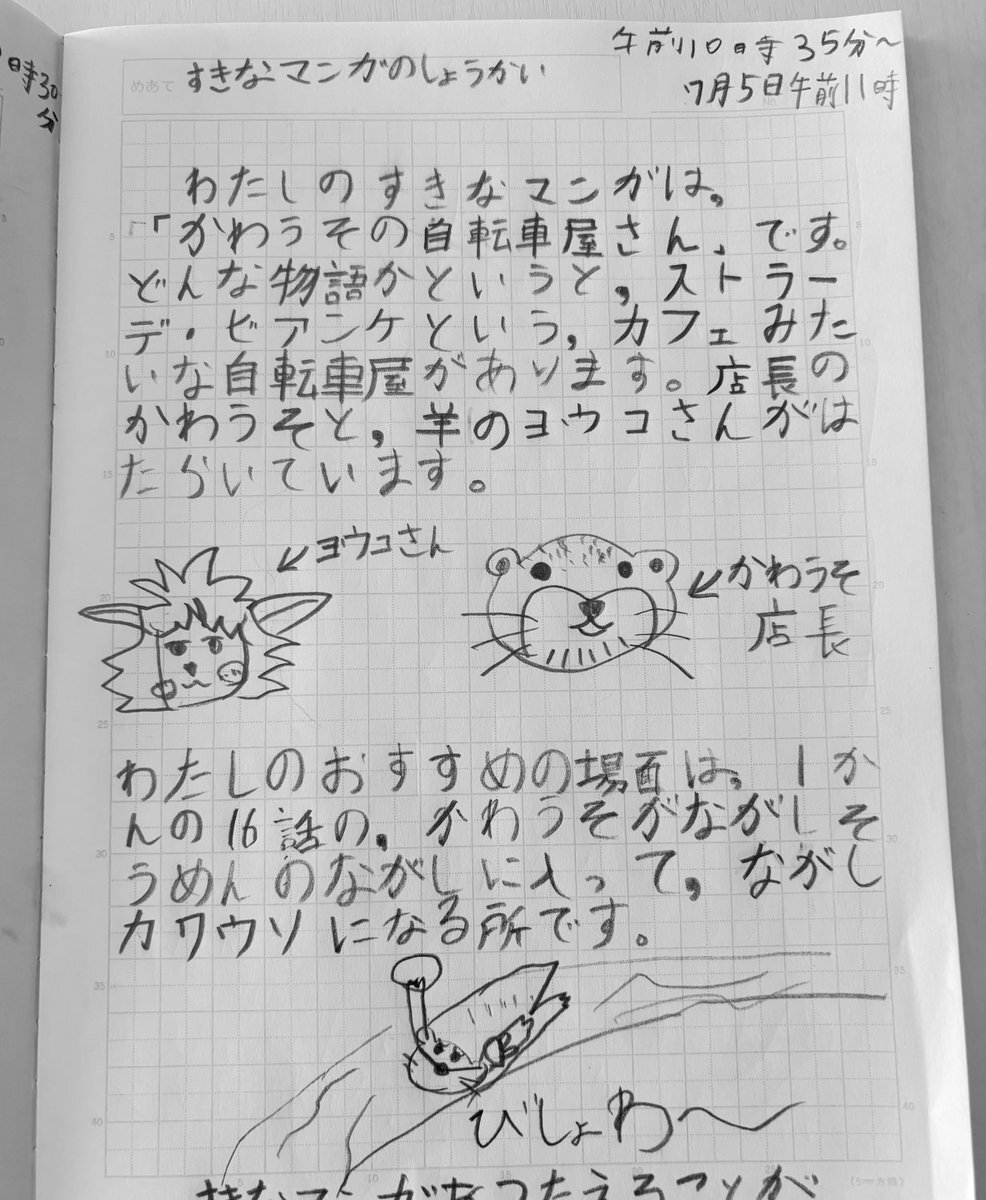 時30
分
午前10時35分〜
7月5日午前11時
めあて すきなマンガのしょうかい
No.
わたしのすきなマンガは,
「かわうその自転車屋さん、です。
どんな物語かというと,ストラー
デ・ビアンケという,カフェみた
いな自転車屋があります。店長の
かわうそと,羊のヨウコさんがは
たらいています。
←ヨウコさん
←かわうそ
店長
わたしのおすすめの場面は,1か
んの16話の,かわうそがながしそ
うめんのながしに入って,ながし
カワウソになる所です。
びしょわ〜
(5mm方眼)